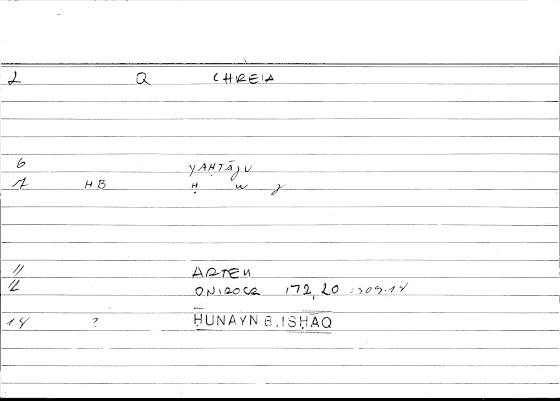 2 Q CHREIA
6 YAḤTĀJU
7 HB Ḥ w j
11 ARTEM
12 ONIROCR 172,20 = 309.14
14 ? ḤUNAYN B. ISḤĀQ